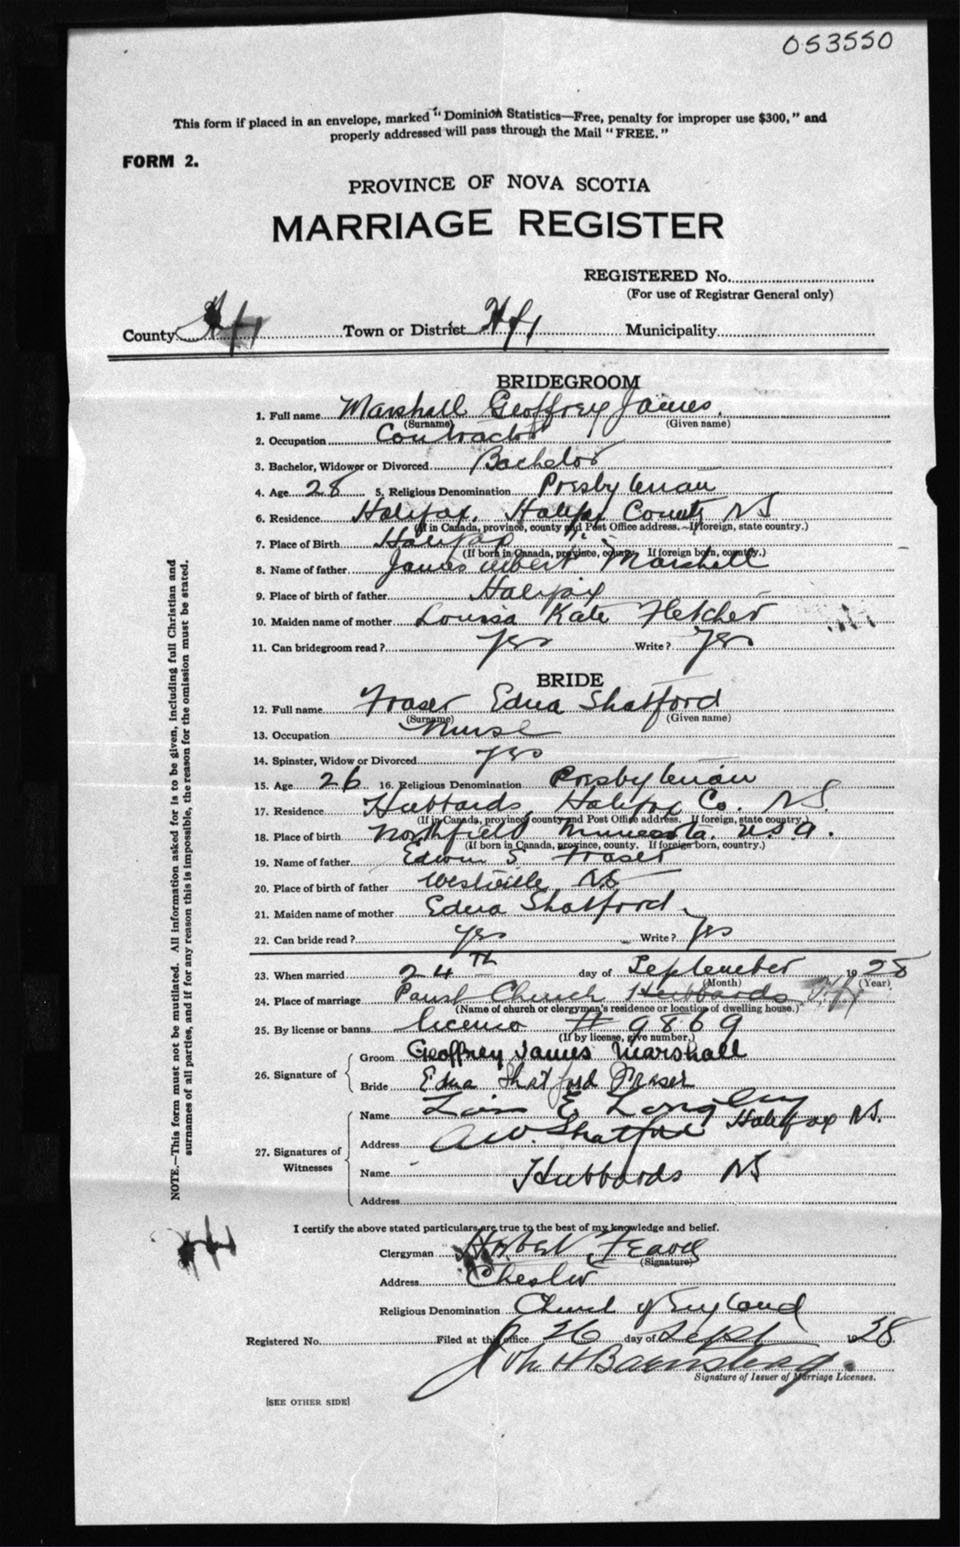 053550
This form if placed in an envelope, marked "Dominion Statistics—Free, penalty for improper use $300," and
properly addressed will pass through the Mail "FREE."
FORM 2.
PROVINCE OF NOVA SCOTIA
MARRIAGE REGISTER
REGISTERED No.
(For use of Registrar General only)
County Hfx Town or District Hfx Municipality
BRIDEGROOM
1. Full name Marshall Geoffrey James.
(Surname) (Given name)
2. Occupation Contractor
3. Bachelor, Widower or Divorced Bachelor
4. Age 28 5. Religious Denomination Presbyterian
6. Residence Halifax, Halifax County NS
(If in Canada, province, county and Post Office address. If foreign, state country.)
7. Place of Birth Halifax
(If born in Canada, province, county. If foreign born, country.)
8. Name of father James Albert Marshall
9. Place of birth of father Halifax
10. Maiden name of mother Louisa Kate Fletcher
11. Can bridegroom read? Yes Write? Yes
BRIDE
12. Full name Fraser Edna Shatford
(Surname) (Given name)
13. Occupation Nurse
14. Spinster, Widow or Divorced yes
15. Age 26 16. Religious Denomination Presbyterian
17. Residence Hubbards, Halifax Co. NS.
(If in Canada, province, county and Post Office address. If foreign, state country.)
18. Place of birth Northfield Minnesota. USA.
(If born in Canada, province, county. If foreign born, country.)
19. Name of father Edwin S Fraser
20. Place of birth of father Westville NS
21. Maiden name of mother Edna Shatford
22. Can bride read? yes Write? Yes
23. When married 24TH day of September 1928
(Month) (Year)
24. Place of marriage Parish Church Hubbards Hfx
(Name of church or clergyman's residence or location of dwelling house.)
25. By license or banns license # 9869
(If by license, give number.)
26. Signature of
Groom Geoffrey James Marshall
Bride Edna Shatford Fraser
27. Signatures of Witnesses
Name Lois E. Longley
Address Halifax NS.
A.W. Shatford
Name Hubbards NS
Address
I certify the above stated particulars are true to the best of my knowledge and belief.
Clergyman
(Signature)
Address Chester
Religious Denomination Church of England
Registered No. Filed at this office 26 day of Sept 1928.
Signature of Issuer of Marriage Licenses.
[SEE OTHER SIDE]
NOTE.—This form must not be mutilated. All information asked for is to be given, including full Christian and
surnames of all parties, and if for any reason this is impossible, the reason for the omission must be stated.